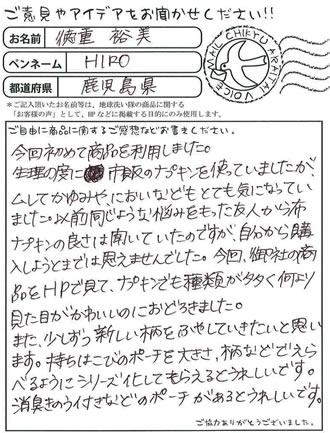 ご意見やアイデアをお聞かせください!!
お名前 徳重 裕美
ペンネーム HIRO
都道府県 鹿児島県
MAIL CHIKYU ARAITAI VOICE
*ご記入頂いたお名前等は、地球洗い隊の商品に関する
「お客様の声」として、HPなどに掲載する目的にのみ使用します。
ご自由に商品に関するご感想などお書きください。
今回初めて商品を利用しました。
生理の度に 市販のナプキンを使っていましたが、
ムレてかゆみや、においなどもとても気になってい
ました。以前同じような悩みをもった友人から布
ナプキンの良さは聞いていたのですが、自分から購
入しようとまでは思えませんでした。今回、御社の商
品をHPで見て、ナプキンでも種類が多く何より
見た目がかわいいのにおどろきました。
また、少しずつ新しい柄をふやしていきたいと思い
ます。持ちはこびのポーチを大きさ、柄などでえら
べるようにシリーズ化してもらえるとうれしいです。
消臭きのう付きなどのポーチがあるとうれしいです。
ご協力ありがとうございました。